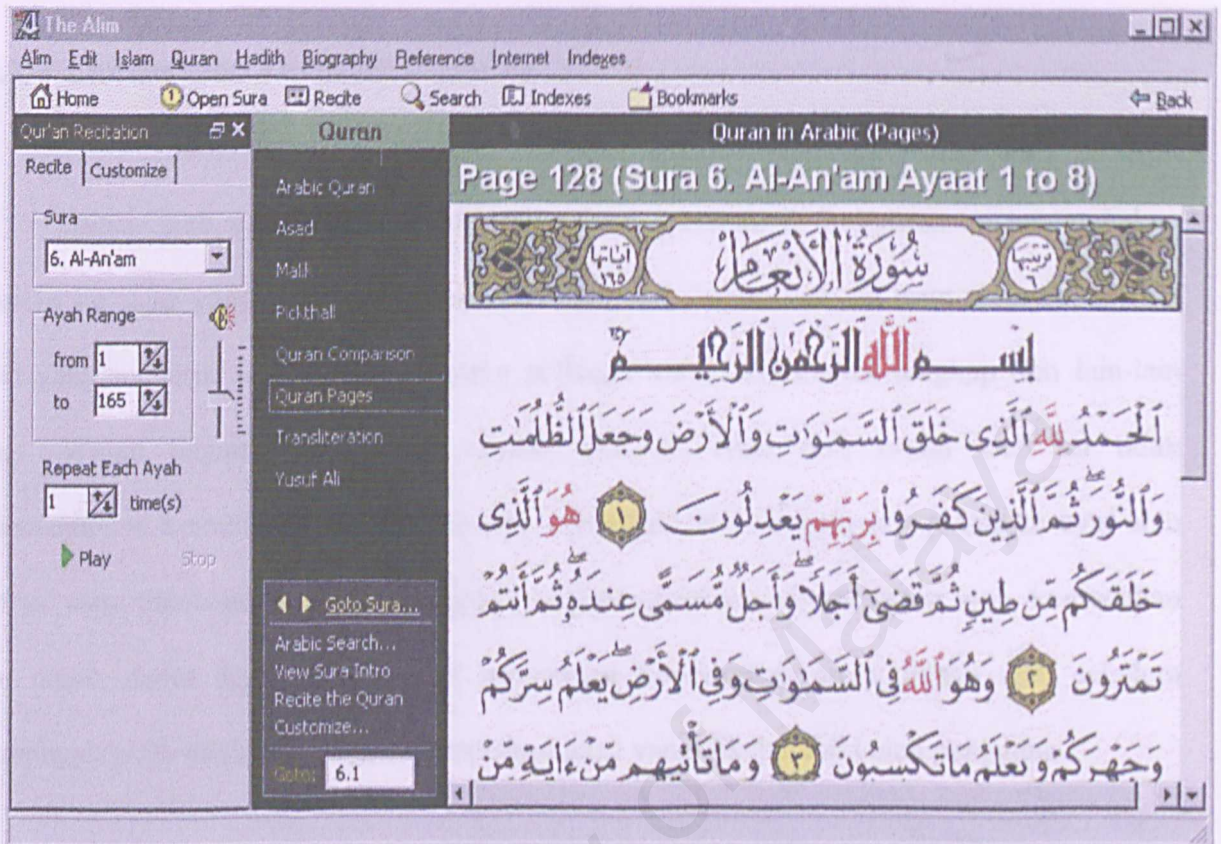 The Alim
Alim Edit Islam Quran Hadith Biography Reference Internet Indexes
Home Open Sura Recite Search Indexes Bookmarks Back
Qur'an Recitation
Recite Customize
Sura
6. Al-An'am
Ayah Range
from 1
to 165
Repeat Each Ayah
1 time(s)
Play Stop
Quran
Arabic Quran
Asad
Malik
Pickthall
Quran Comparison
Quran Pages
Transliteration
Yusuf Ali
Goto Sura...
Arabic Search...
View Sura Intro
Recite the Quran
Customize...
Goto: 6.1
Quran in Arabic (Pages)
Page 128 (Sura 6. Al-An'am Ayaat 1 to 8)
ترتيبها ٦ سُورَةُ الأَنْعَامِ آياتها ١٦٥
بِسْمِ ٱللَّهِ ٱلرَّحْمَٰنِ ٱلرَّحِيمِ
ٱلْحَمْدُ لِلَّهِ ٱلَّذِى خَلَقَ ٱلسَّمَٰوَٰتِ وَٱلْأَرْضَ وَجَعَلَ ٱلظُّلُمَٰتِ
وَٱلنُّورَ ۖ ثُمَّ ٱلَّذِينَ كَفَرُوا۟ بِرَبِّهِمْ يَعْدِلُونَ ١ هُوَ ٱلَّذِى
خَلَقَكُم مِّن طِينٍ ثُمَّ قَضَىٰٓ أَجَلًا ۖ وَأَجَلٌ مُّسَمًّى عِندَهُۥ ۖ ثُمَّ أَنتُمْ
تَمْتَرُونَ ٢ وَهُوَ ٱللَّهُ فِى ٱلسَّمَٰوَٰتِ وَفِى ٱلْأَرْضِ ۖ يَعْلَمُ سِرَّكُمْ
وَجَهْرَكُمْ وَيَعْلَمُ مَا تَكْسِبُونَ ٣ وَمَا تَأْتِيهِم مِّنْ ءَايَةٍ مِّنْ